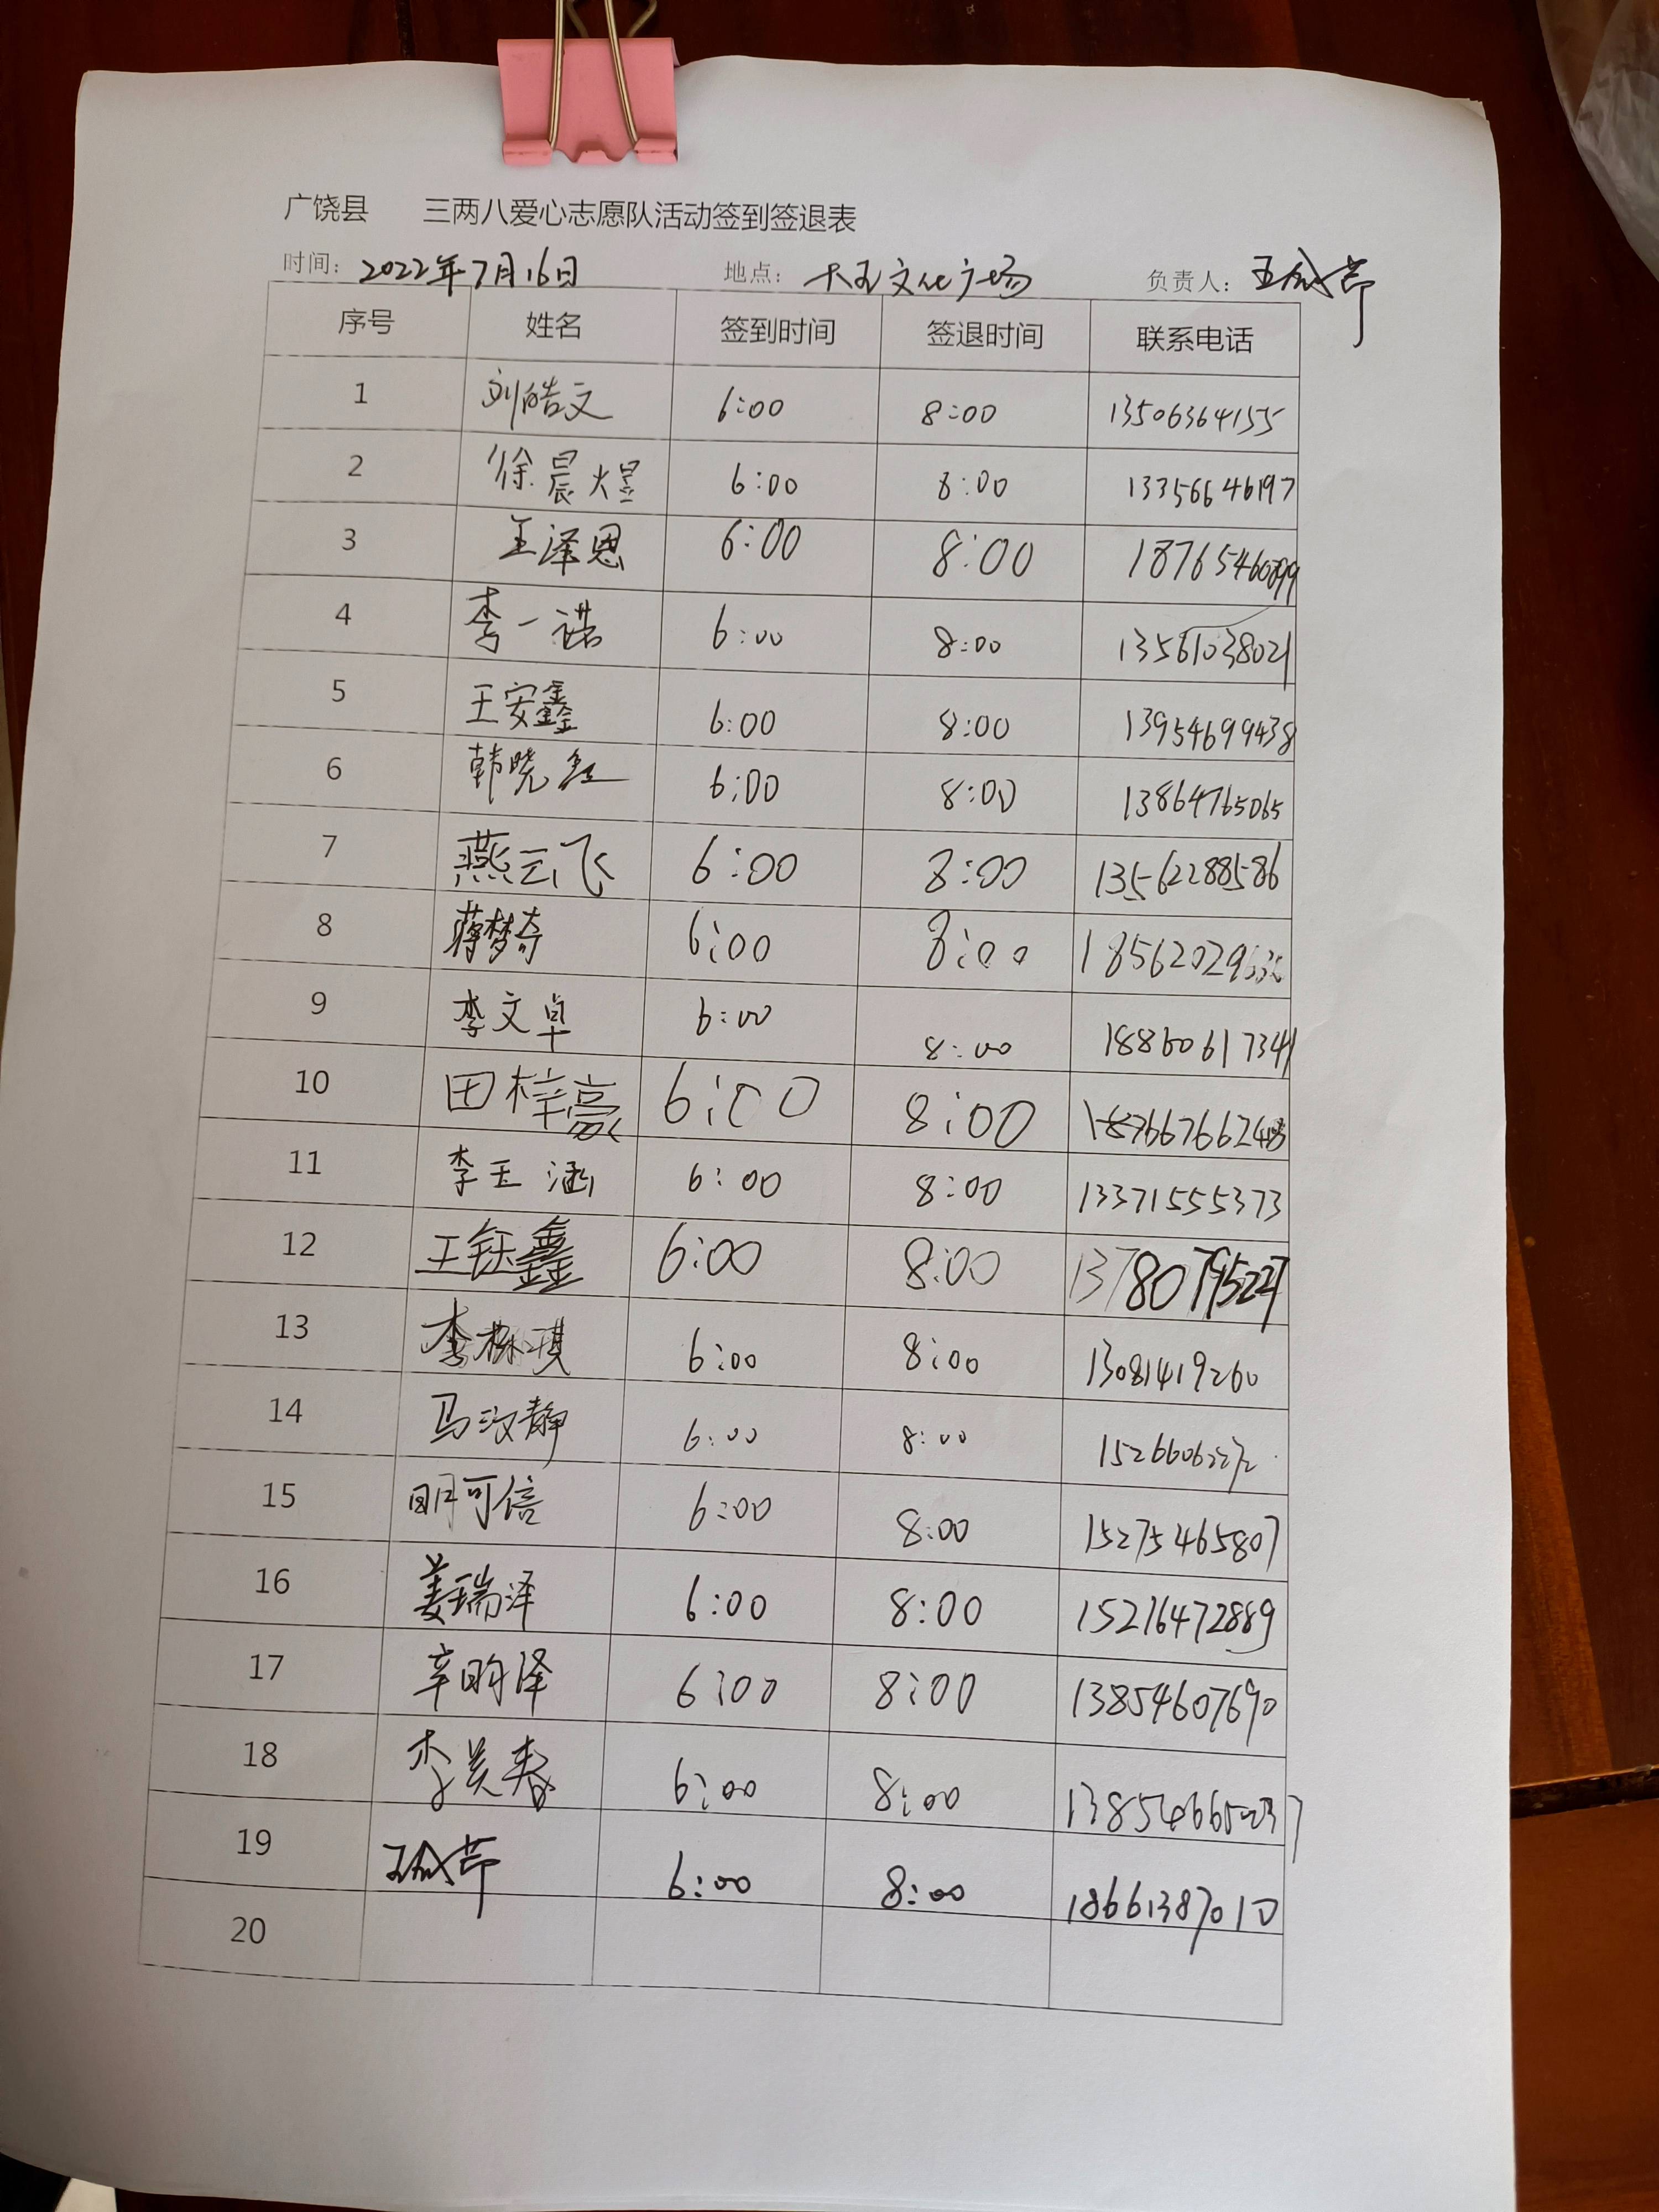 广饶县 三两八爱心志愿队活动签到签退表
时间: 2022年7月16日 地点: 大王文化广场 负责人: 王
序号 姓名 签到时间 签退时间 联系电话
1 刘皓文 6:00 8:00 13506364155
2 徐晨煜 6:00 8:00 13356646197
3 王泽恩 6:00 8:00 18765460899
4 李一诺 6:00 8:00 13561038021
5 王安鑫 6:00 8:00 13954699438
6 韩晓红 6:00 8:00 13864765065
7 燕云飞 6:00 8:00 13562288586
8 蒋梦奇 6:00 8:00
9 李文卓 6:00 8:00 18860617341
10 田梓豪 6:00 8:00
11 李玉涵 6:00 8:00 13371555373
12 王钰鑫 6:00 8:00
13 李 琪 6:00 8:00 13081419260
14 马汶静 6:00 8:00
15 明可信 6:00 8:00 15275465807
16 姜瑞泽 6:00 8:00 15216472889
17 辛昀泽 6:00 8:00 13854607690
18 李美春 6:00 8:00
19 王 6:00 8:00 18661387010
20